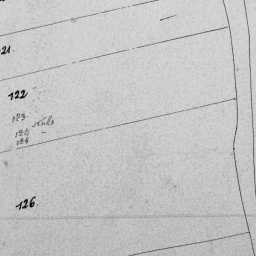 21
122
123
124
125
126